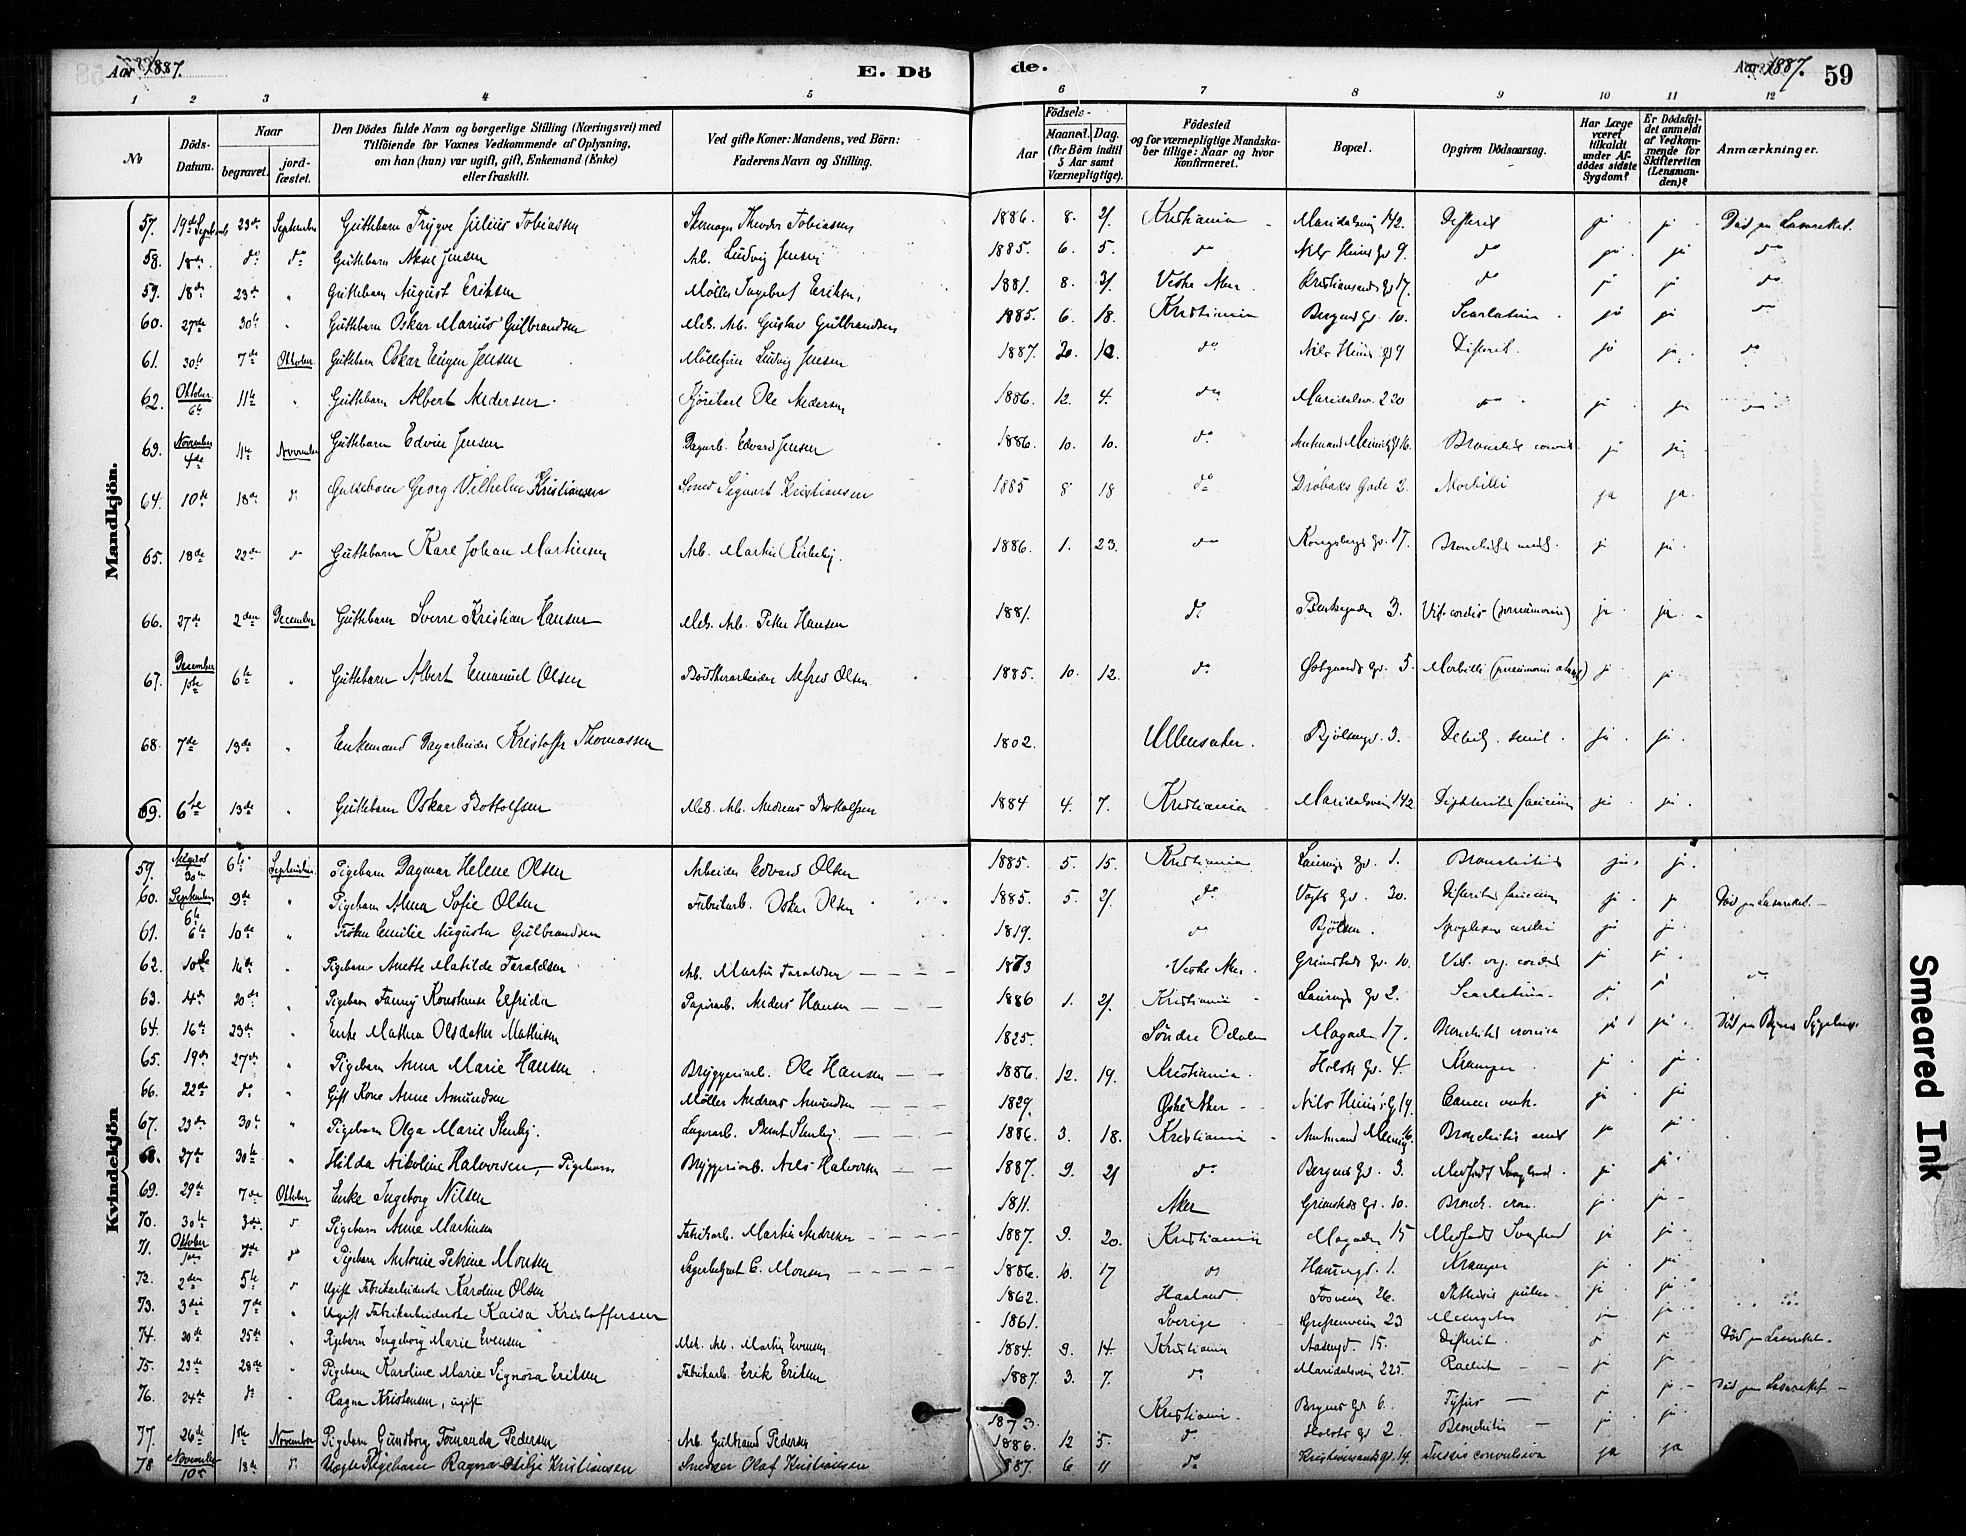 Aar 1887.
E. Dö
de.
Aar 1887.
59
1 2 3 4 5 6 7 8 9 10 11 12
No
Döds-Datum.
Naar
begravet.
jord-fæstet.
Den Dödes fulde Navn og borgerlige Stilling (Næringsvei) med
Tilföiende for Voxnes Vedkommende af Oplysning,
om han (hun) var ugift, gift, Enkemand (Enke)
eller fraskilt.
Ved gifte Koner: Mandens, ved Börn:
Faderens Navn og Stilling.
Födsels-
Aar
Maaned. Dag.
(for Börn indtil
5 Aar samt
Værnepligtige).
Födested
og for værnepligtige Mandska-
ber tillige: Naar og hvor
konfirmeret.
Bopæl.
Opgiven Dödsaarsag.
Har Læge
været
tilkaldt
under Af-
dödes sidste
Sygdom?
Er Dödsfal-
det anmeldt
af Vedkom-
mende for
Skifteretten
(Lensman-
den)?
Anmærkninger.
Mandkjön.
57. 19de Septemb 23de September Guttebarn Trygve Julius Tobiassen Theodor Tobiassen 1886. 8. 21. Kristiania Maridalsvei 142. Difterit ja ja Död paa Lasarettet.
58. 18de do do Guttebarn Aksel Jensen Arb. Ludvig Jensen 1885. 6. 5. do Nils Huus gd 9. do ja ja do
59. 18de 23de " Guttebarn August Eriksen Möller Ingebret Eriksen 1881. 8. 31. Vestre Aker. Kristiansands gd 17. do ja ja do
60. 27de 30te " Guttebarn Oskar Marius Gulbrandsen Mek. Arb. Gustav Gulbrandsen 1885. 6. 18. Kristiania Bergens gd. 10. Scarlatina ja ja do
61. 30te 7de Oktober Guttebarn Oskar Eugen Jensen Ludvig Jensen 1887. 10. do Nils Huus gd 9 Difterit. ja ja do
62. Oktober 6te 11te " Guttebarn Albert Andersen Ole Andersen 1886. 12. 4. do Maridalsv. 230 do ja ja do
63. November 4de 11te November Guttebarn Edvin Jensen Dagarb. Edvard Jensen 1886. 10. 10. do Amtmand Meinichs gd 16. ja ja
64. 10de 18de do Guttebarn Georg Vilhelm Kristiansen Sigvart Kristiansen 1885 8 18 do Dröbaks Gade 2. Morbilli ja ja.
65. 18de 22de do Guttebarn Karl Johan Martinsen Arb. Martin Kirkeby. 1886. 1. 23. do Kongsbergs gd. 17. ja ja.
66. 27de 2den December Guttebarn Sverre Kristian Hansen Mek. Arb. Peter Hansen 1881. do 3. Vit. cordis (pneumonie) ja ja
67. December 1ste 6te " Guttebarn Albert Emanuel Olsen Alfred Olsen 1885. 10. 12. do 5. Morbilli ja ja
68. 7de 13de " Enkemand Dagarbeider Kristoffer Thomassen 1802. Ullensaker. Bjölsengd. 3. Debil. senil. ja ja.
69. 6te 13de " Guttebarn Oskar Bottolfsen Mek. Arb. Andreas Bottolfsen 1884 4. 7. Kristiania Maridalsvein 142 ja ja.
Kvindekjön
59. August 30te 6te September Pigebarn Dagmar Helene Olsen Arbeider Edvard Olsen 1885. 5. 15. Kristiania gd. 1. Bronchitis ja. ja.
60. September 6te 9de " Pigebarn Anna Sofie Olsen Fabrikarb. Oskar Olsen 1885. 5. 21. do Vogts gd. 30. ja ja Död paa Lasarettet.
61. 6te 10de " Fröken Emilie Augusta Gulbrandsen 1819. do Bjölsen. ja ja
62. 10de 16de " Pigebarn Anette Matilde Taraldsen Arb. Martin Taraldsen 1873 Vestre Aker. Grimstads gd. 10. Vit. org. cordis ja ja
63. 14de 20de " Pigebarn Fanny Konstanse Elfrida Papirarb. Anders Hansen 1886 1. 21. Kristiania gd 2. Scarlatina ja ja do
64. 16de 23de " Enke Mathea Olsdatter Mathisen 1825. Söndre Odalen Mogaden 17. Bronchitis cronica ja ja Död paa Byens Sygehus.
65. 19de 27de " Pigebarn Anna Marie Hansen Bryggeriarb. Ole Hansen 1886. 12. 19. Kristiania. Holsts gd. 4. Kramper ja ja
66. 22de do " Gift Kone Anne Amundsen Möller Andreas Amundsen 1829. Østre Aker Nils Huus gd 19. Cancer ja ja
67. 23de 30te " Pigebarn Olga Marie Stenby. Lagerarb. Bernt Stenby 1886. 3. 18. Kristiania Amtmand Meinichs 16. Bronchitis ja ja
68. 27de 30te " Hilda Nikoline Halvorsen, Pigebarn Bryggeriarb. Nils Halvorsen 1887. 9. 21 do Bergens gd. 3. Medfödt Svaghed ja ja
69. 29de 7de Oktober Enke Ingeborg Nilsen 1811. Aker Grimstads gd. 10. Bronch. cron. ja ja
70. 30te 3die Pigebarn Anne Martinsen Fabrikarb. Martin Andersen 1887. 9. 20. Kristiania Mogaden 15 Medfödt Svaghed ja ja
71. Oktober 1ste 7de do Pigebarn Antonie Petrine Monsen C. Monsen 1886. 10. 17 do 1. Kramper ja ja
72. 2den 5te Ugift Fabrikarbeiderske Karoline Olsen 1862. Haaland. Fosvein 26. ja ja
73. 3die 7de " Ugift Fabrikarbeiderske Kaisa Kristoffersen 1861. Sverige Grefsenvein 23 ja ja
74. 20de 25de " Pigebarn Ingeborg Marie Evensen Mek. Arb. Martin Evensen 1884. 9. 14. Kristiania Aasengd. 15. Difterit. Död paa Lasarettet.
75. 23de 28de " Pigebarn Karoline Marie Signora Eriksen Fabrikarb. Erik Eriksen 1887. 3. 7. do Maridalsvein 225. Rachit ja ja
76. 24de do " Ragna Kristensen, ugift 1873. Kristiania. Bergens gd 6. Tyfus ja Död paa Lasarettet
77. 26de 1ste November Pigebarn Gundborg Fernanda Pedersen Arb. Gulbrand Pedersen 1886. 12 5. do Holsts gd 2 Bronchitis ja ja
78 November 10de 18de do Pigebarn Ragna Silje Kristiansen Snedker Olaf Kristiansen 1887. 6 11 do Kristiansands gd. 19. Tussis convulsiva ja ja
Smeared Ink